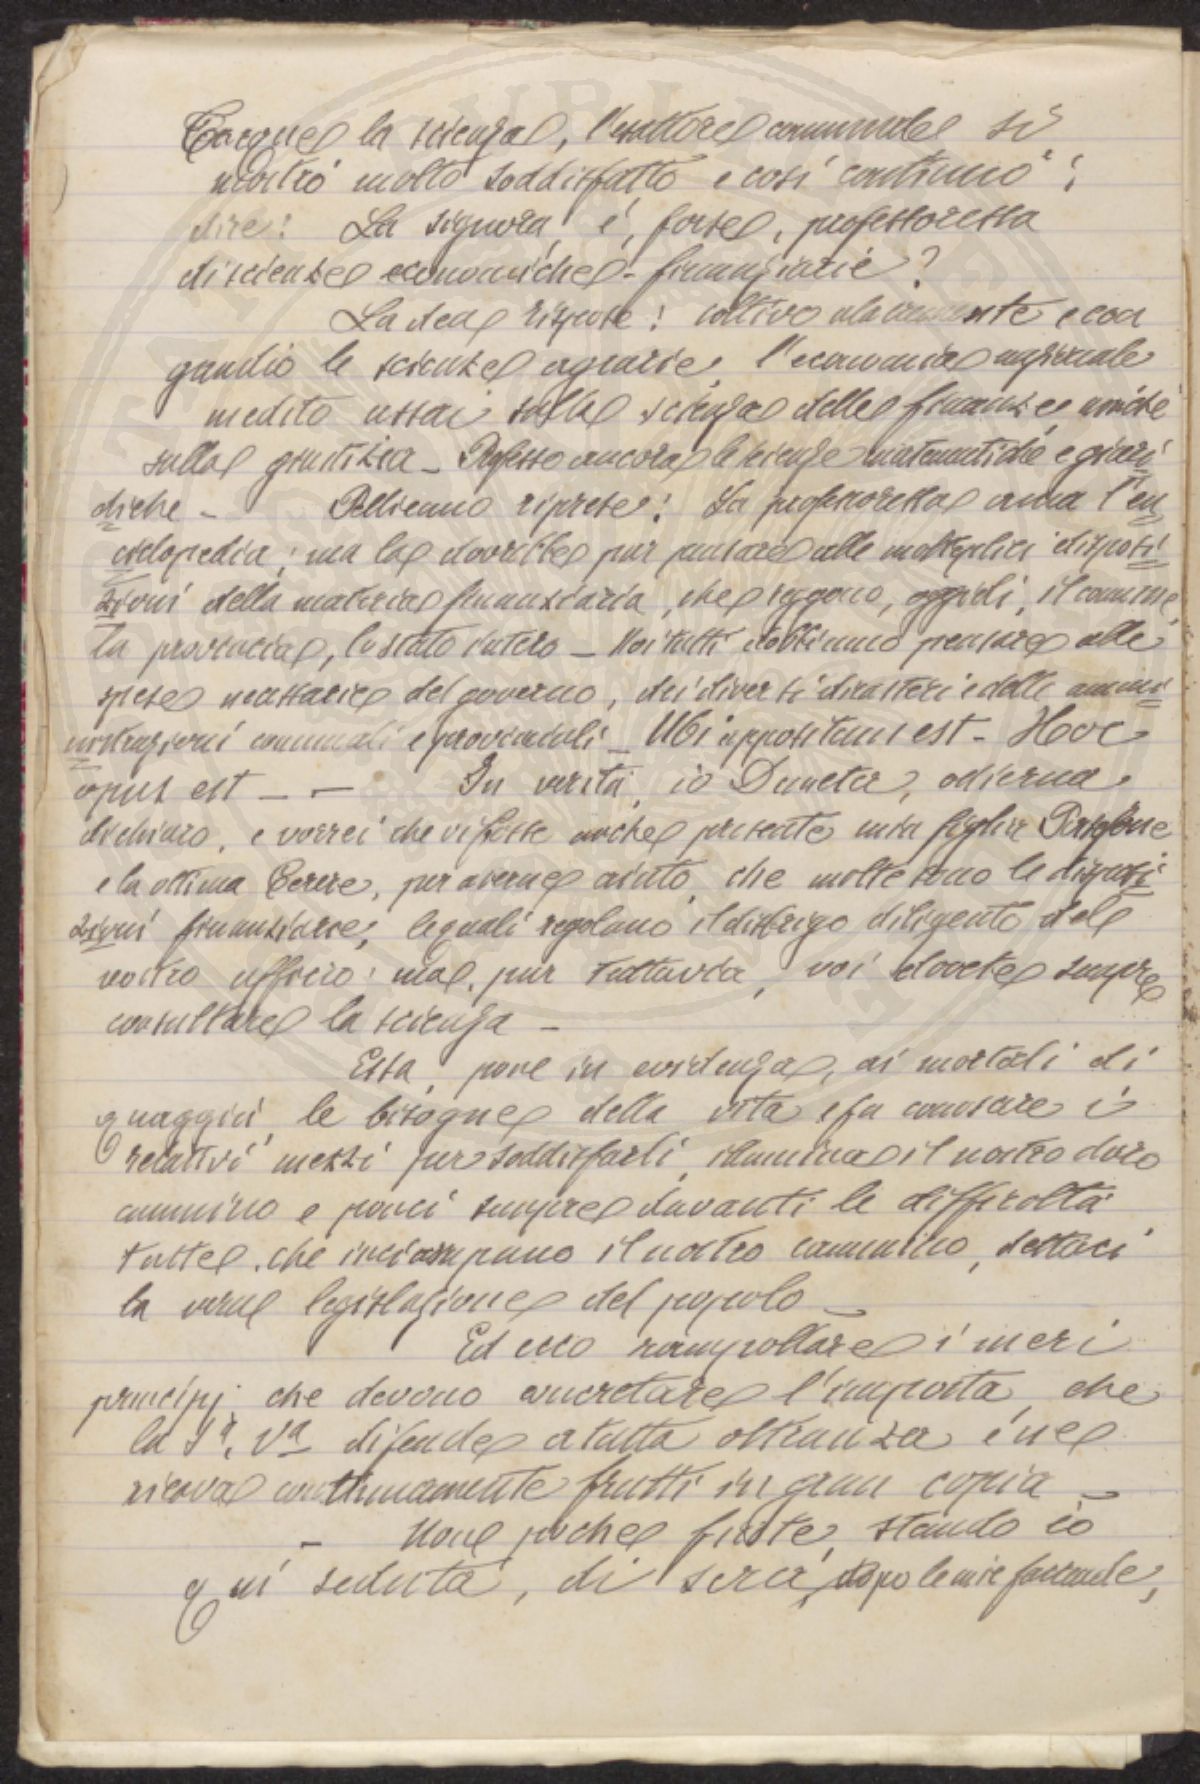 Tacque la scienza, l'esattore comunale si
mostrò molto soddisfatto e così continuò :
dire: La signora, è, forse, professoressa
di scienze economiche - finanziarie?
La dea rispose: coltivo alacremente e con
gaudio le scienze agrarie, l'economia nazionale
medito assai sulla scienza delle finanze, nonché
sulla giustizia - Professo ancora le scienze matematiche e giuri
diche - Pellicano riprese: La professoressa ama l'en
ciclopedia; ma la dovrebbe pur pensare alle molteplici disposi
zioni della materia finanziaria, che reggono, oggidì, il comune,
la provincia, lo stato intero - Noi tutti dobbiamo pensare alle
spese necessarie del governo, dei diversi dicasteri e delle ammi
nistrazioni comunali e provinciali - Ubi oppositum est - Hoc
opus est - - In verità, io Demeter, odierna
dichiaro, e vorrei che vi fosse anche presente mia figlia Persefone
e la ottima Cerere, per averne aiuto, che molte sono le disposi
zioni finanziarie, le quali regolano il disbrigo diligente del
vostro ufficio: ma, pur tuttavia, voi dovete sempre
consultare la scienza -
Essa, pone in evidenza, ai mortali di
quaggiù, le bisogne della vita e fa conoscere i
relativi mezzi per soddisfarli, illumina il nostro duro
cammino e ponci sempre davanti le difficoltà
tutte, che inciampano il nostro cammino, dettaci
la vera legislazione del popolo -
Ed ecco rampollare i meri
principj che devono concretare l'imposta, che
la Sª. Vª difende a tutta oltranza e ne
ricava continuamente frutti in gran copia -
- Non poche fiate, stando io
qui seduta, di sera, dopo le mie faccende,